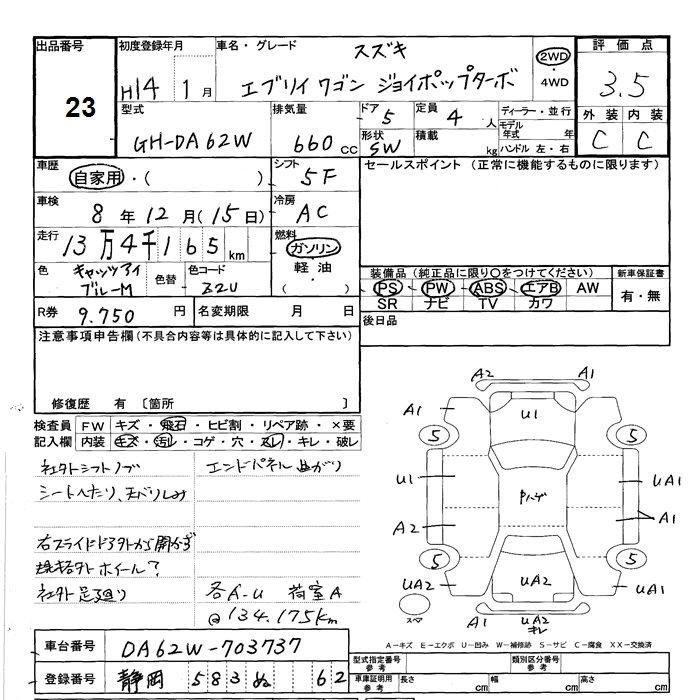 出品番号 初度登録年月 車名・グレード スズキ 評価点
23 H14 1月 エブリイワゴン ジョイポップターボ 2WD・4WD 3.5
型式 排気量 ドア 5 定員 4人 ディーラー・並行 外装 内装
GH-DA62W 660cc 形状 SW 積載 kg モデル年式 年 ハンドル 左・右 C C
車歴 自家用・( ) シフト 5F セールスポイント (正常に機能するものに限ります)
車検 8年12月(15日) 冷房 AC
走行 13万4千165km 燃料 ガソリン 軽油 ( )
色 キャッツアイブルーM 色替 色コード Z2U
装備品 (純正品に限り○をつけてください) 新車保証書
PS PW ABS エアB AW 有・無
SR ナビ TV カワ
R券 9.750円 名変期限 月 日 後日品
注意事項申告欄(不具合内容等は具体的に記入して下さい)
修復歴 有 〔箇所 〕
検査員 FW キズ・飛石・ヒビ割・リペア跡・×要
記入欄 内装 キズ・汚レ・コゲ・穴・スレ・キレ・破レ
社外シフトノブ エンドパネル曲がり
シートへたり、天バリしみ
右スライドドア外から開かず
規格外ホイール?
社外足廻り 各A-U 荷室A
@134.175km
A2 A1
A1 U1 A1
5 5
U1 Pハゲ UA1
A2 A1
5 5
UA2 UA2 UA1
スペア A1 UA2 キレ A1
A-キズ E-エクボ U-凹み W-補修跡 S-サビ C-腐食 XX-交換済
車台番号 DA62W-703737
登録番号 静岡 583 ぬ 62
型式指定番号 参考 類別区分番号 参考
車庫証明用 参考 長さ cm 幅 cm 高さ cm